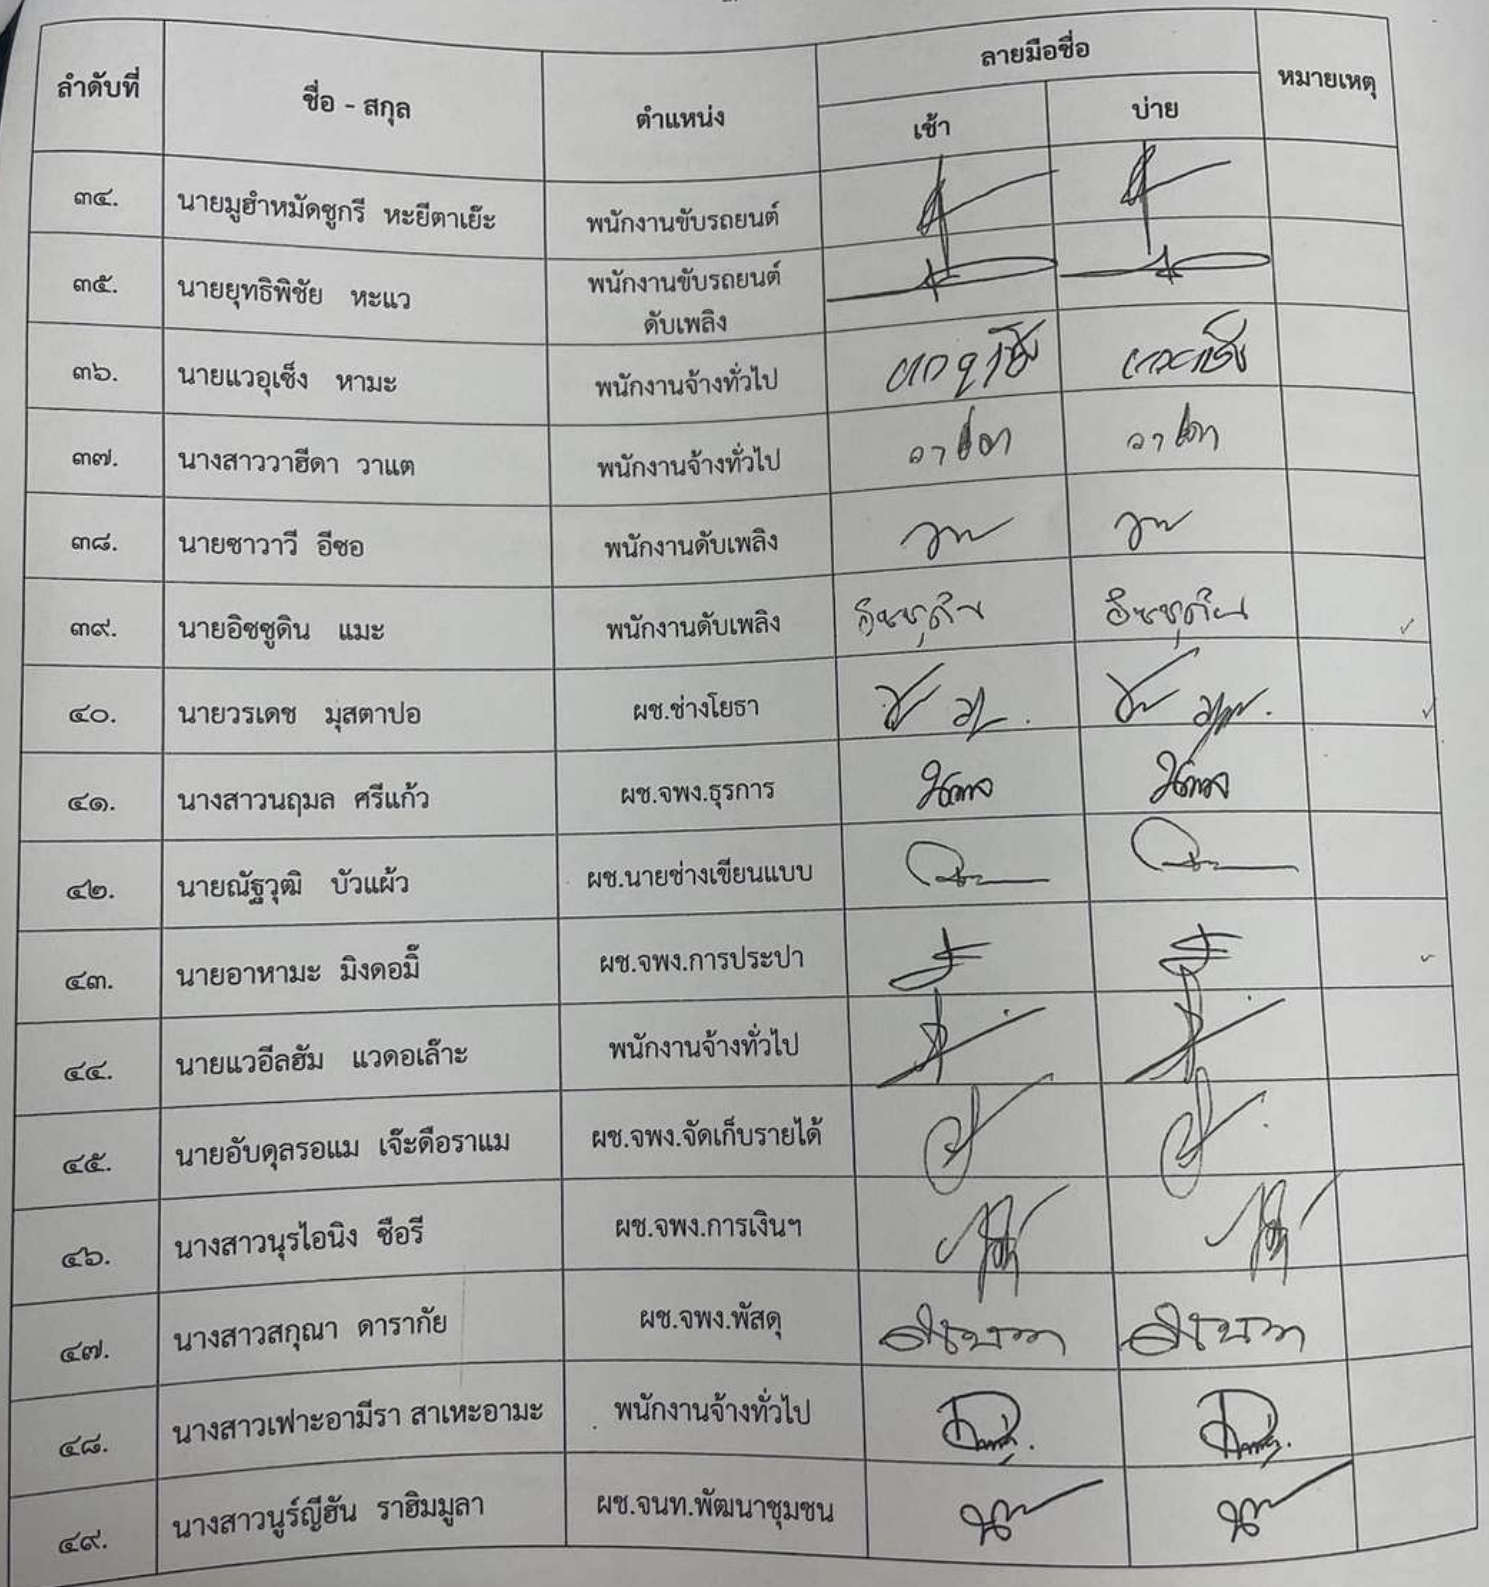 ลำดับที่ ชื่อ - สกุล ตำแหน่ง ลายมือชื่อ หมายเหตุ
เช้า บ่าย
๓๔. นายมูฮำหมัดซูกรี หะยีตาเย๊ะ พนักงานขับรถยนต์
๓๕. นายยุทธิพิชัย หะแว พนักงานขับรถยนต์
ดับเพลิง
๓๖. นายแวอุเซ็ง หามะ พนักงานจ้างทั่วไป
๓๗. นางสาววาฮีดา วาแต พนักงานจ้างทั่วไป
๓๘. นายซาวาวี อีซอ พนักงานดับเพลิง
๓๙. นายอิชซูดิน แมะ พนักงานดับเพลิง
๔๐. นายวรเดช มุสตาปอ ผช.ช่างโยธา
๔๑. นางสาวนฤมล ศรีแก้ว ผช.จพง.ธุรการ
๔๒. นายณัฐวุฒิ บัวแผ้ว ผช.นายช่างเขียนแบบ
๔๓. นายอาหามะ มิงดอมิ๊ ผช.จพง.การประปา
๔๔. นายแวอีลฮัม แวดอเล๊าะ พนักงานจ้างทั่วไป
๔๕. นายอับดุลรอแม เจ๊ะดือราแม ผช.จพง.จัดเก็บรายได้
๔๖. นางสาวนุรไอนิง ซือรี ผช.จพง.การเงินฯ
๔๗. นางสาวสกุณา ดารากัย ผช.จพง.พัสดุ
๔๘. นางสาวเฟาะอามีรา สาเหะอามะ พนักงานจ้างทั่วไป
๔๙. นางสาวนูร์ญีฮัน ราฮิมมูลา ผช.จนท.พัฒนาชุมชน